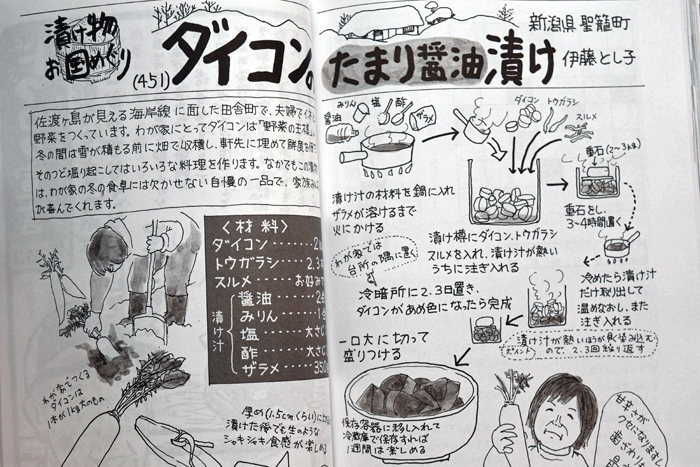 漬け物
お国めぐり
(451)
ダイコンの
たまり醤油漬け
新潟県 聖籠町
伊藤とし子
佐渡ヶ島が見える海岸線に面した田舎町で、夫婦で
野菜をつくっています。わが家にとってダイコンは「野菜の王様」
冬の間は雪が積もる前に畑で収穫し、軒先に埋めて鮮度を
そのつど掘り起こしてはいろいろな料理を作ります。なかでもこの
は、わが家の冬の食卓には欠かせない自慢の一品で、家族
が喜んでくれます。
〈材料〉
ダイコン
トウガラシ……2.3
スルメ……お好み
漬け汁
醤油
みりん
塩……大さじ
酢……大さじ
ザラメ……350
わが家でつくる
ダイコンは
1本が1kg大のもの
厚め(1.5cmくらい)に
漬けた後でも生のような
シャキシャキ食感が楽しめ
醤油
みりん
塩
酢
ザラメ
漬け汁の材料を鍋に入れ
ザラメが溶けるまで
火にかける
ダイコン
トウガラシ
スルメ
漬け樽にダイコン、トウガラシ
スルメを入れ、漬け汁が熱い
うちに注ぎ入れる
重石(2〜3kg)
重石をし、
3〜4時間置く
冷めたら漬け汁
だけ取出して
温めなおし、また
注ぎ入れる
ポイント
漬け汁が熱いほうが良く染み込む
ので、2.3回繰り返す
わが家では
台所の隅に置く
冷暗所に2.3日置き、
ダイコンがあめ色になったら完成
一口大に切って
盛りつける
保存容器に移し入れて
冷蔵庫で保存すれば
1週間は楽しめる
甘辛さが
クセになります!